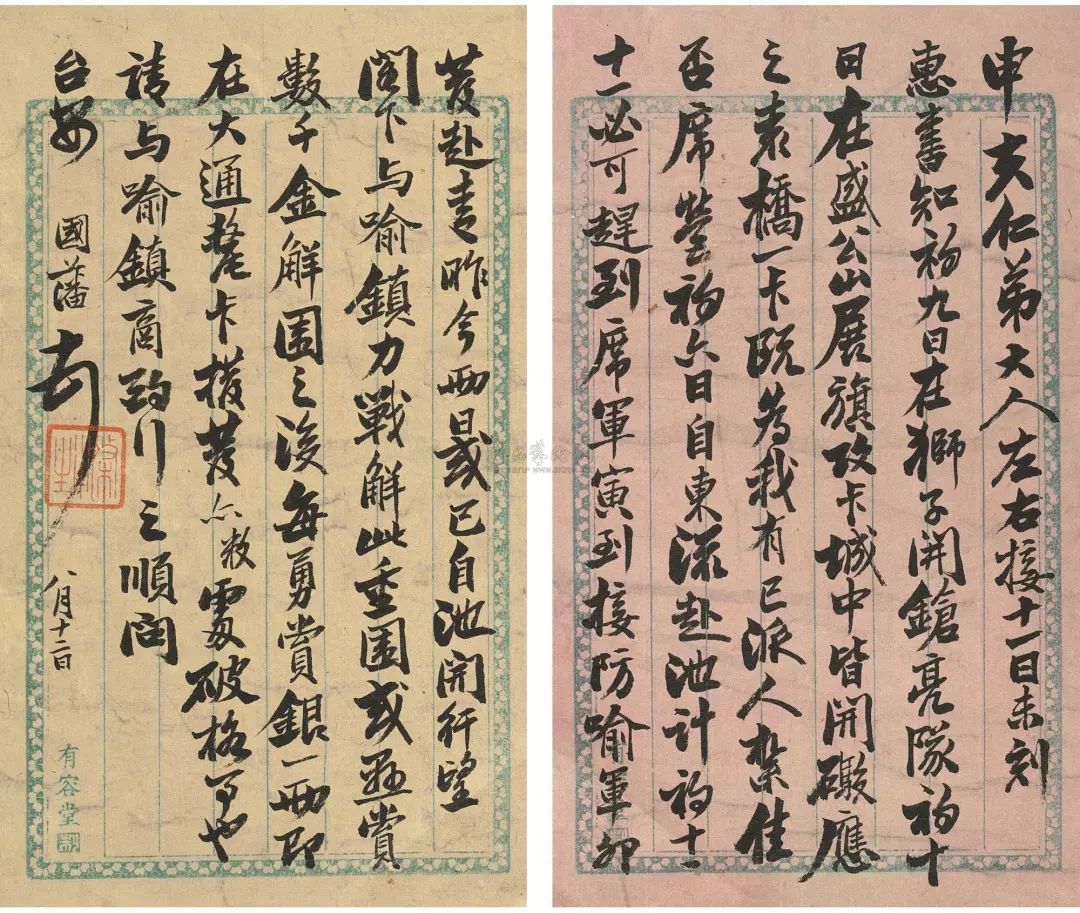 申夫仁弟大人左右接十一日未刻
惠書知初九日在獅子開鎗亮隊初十
日在盛公山展旗攻卡城中皆開礮應
之袁橋一卡既為我有已派人紮住
否席營初六日自東流赴池計初十
十一必可趕到席軍寅到接防喻軍卯
發赴青昨今兩晨或已自池開行望
閣下與喻鎮力戰解此重圍或懸賞
數千金解圍之後每勇賞銀一兩即
在大通釐卡撥發亦救處破格事也
請與喻鎮商酌行之順問
台安 國藩
八月十二日
有容堂